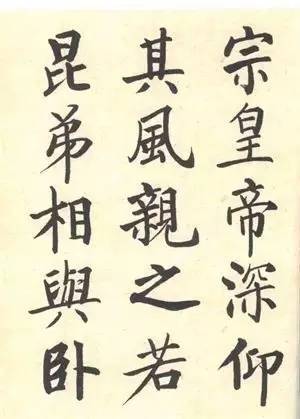 宗皇帝深仰
其風親之若
昆弟相與卧